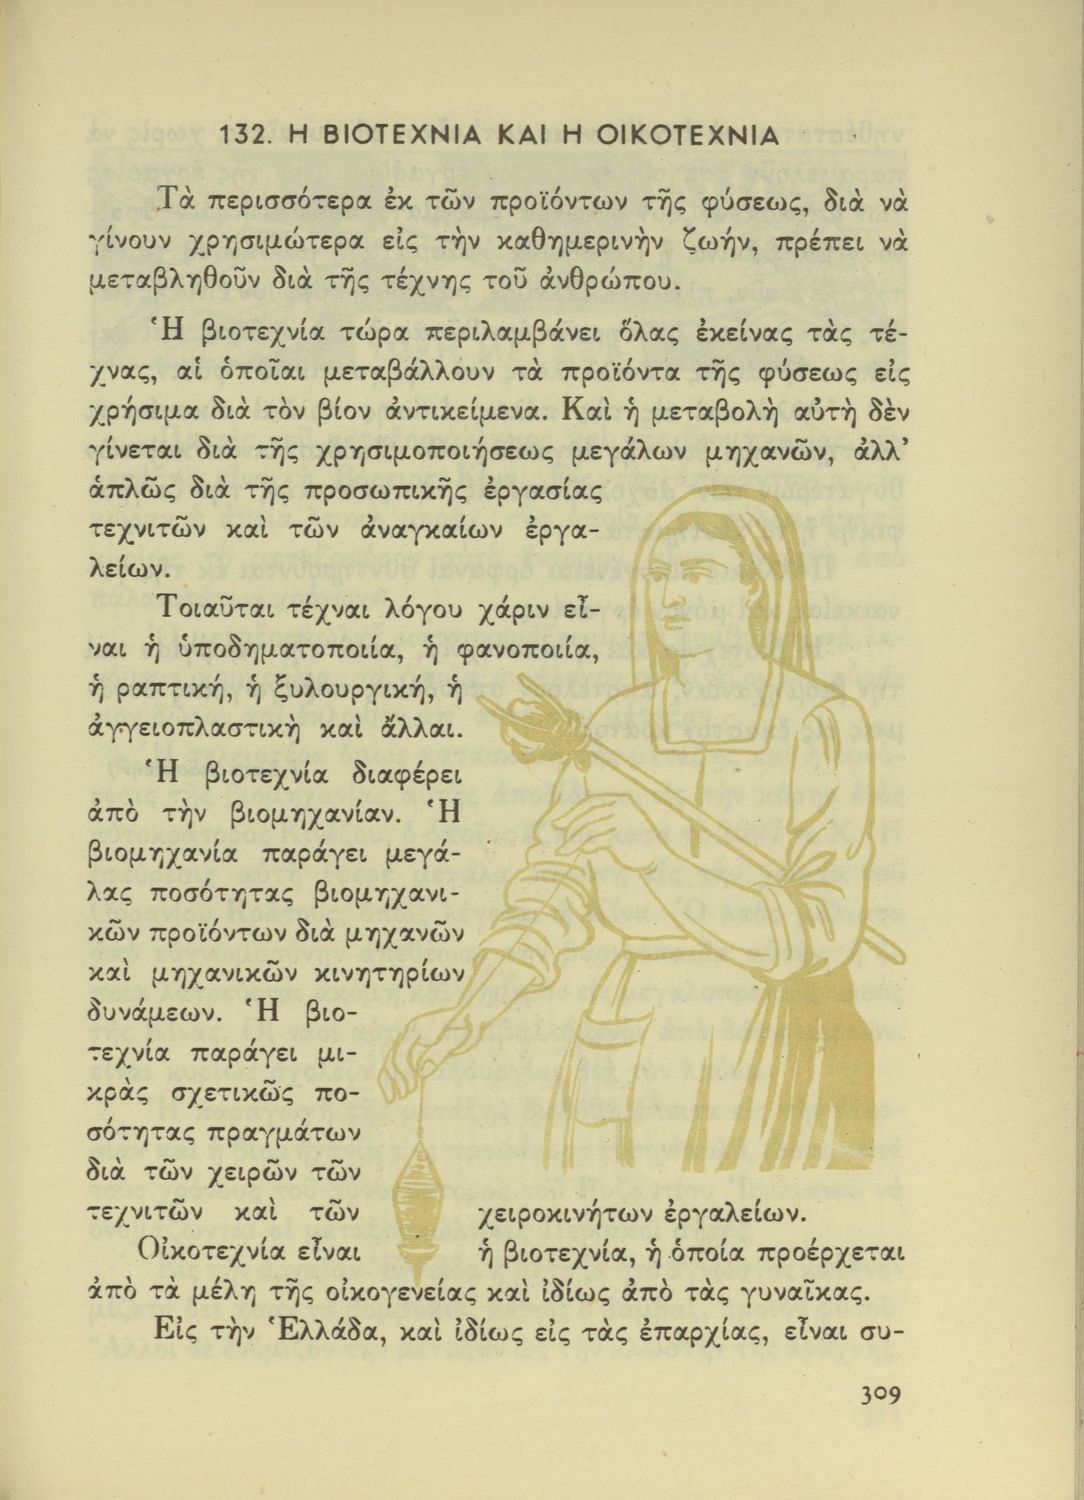 132. Η ΒΙΟΤΕΧΝΙΑ ΚΑΙ Η ΟΙΚΟΤΕΧΝΙΑ
Τὰ περισσότερα ἐκ τῶν προϊόντων τῆς φύσεως, διὰ νὰ
γίνουν χρησιμώτερα εἰς τὴν καθημερινὴν ζωήν, πρέπει νὰ
μεταβληθοῦν διὰ τῆς τέχνης τοῦ ἀνθρώπου.
Ἡ βιοτεχνία τώρα περιλαμβάνει ὅλας ἐκείνας τὰς τέ-
χνας, αἱ ὁποῖαι μεταβάλλουν τὰ προϊόντα τῆς φύσεως εἰς
χρήσιμα διὰ τὸν βίον ἀντικείμενα. Καὶ ἡ μεταβολὴ αὐτὴ δὲν
γίνεται διὰ τῆς χρησιμοποιήσεως μεγάλων μηχανῶν, ἀλλ’
ἁπλῶς διὰ τῆς προσωπικῆς ἐργασίας
τεχνιτῶν καὶ τῶν ἀναγκαίων ἐργα-
λείων.
Τοιαῦται τέχναι λόγου χάριν εἶ-
ναι ἡ ὑποδηματοποιία, ἡ φανοποιία,
ἡ ραπτική, ἡ ξυλουργική, ἡ
ἀγγειοπλαστικὴ καὶ ἄλλαι.
Ἡ βιοτεχνία διαφέρει
ἀπὸ τὴν βιομηχανίαν. Ἡ
βιομηχανία παράγει μεγά-
λας ποσότητας βιομηχανι-
κῶν προϊόντων διὰ μηχανῶν
καὶ μηχανικῶν κινητηρίων
δυνάμεων. Ἡ βιο-
τεχνία παράγει μι-
κρὰς σχετικῶς πο-
σότητας πραγμάτων
διὰ τῶν χειρῶν τῶν
τεχνιτῶν καὶ τῶν χειροκινήτων ἐργαλείων.
Οἰκοτεχνία εἶναι ἡ βιοτεχνία, ἡ ὁποία προέρχεται
ἀπὸ τὰ μέλη τῆς οἰκογενείας καὶ ἰδίως ἀπὸ τὰς γυναῖκας.
Εἰς τὴν Ἑλλάδα, καὶ ἰδίως εἰς τὰς ἐπαρχίας, εἶναι συ-
309